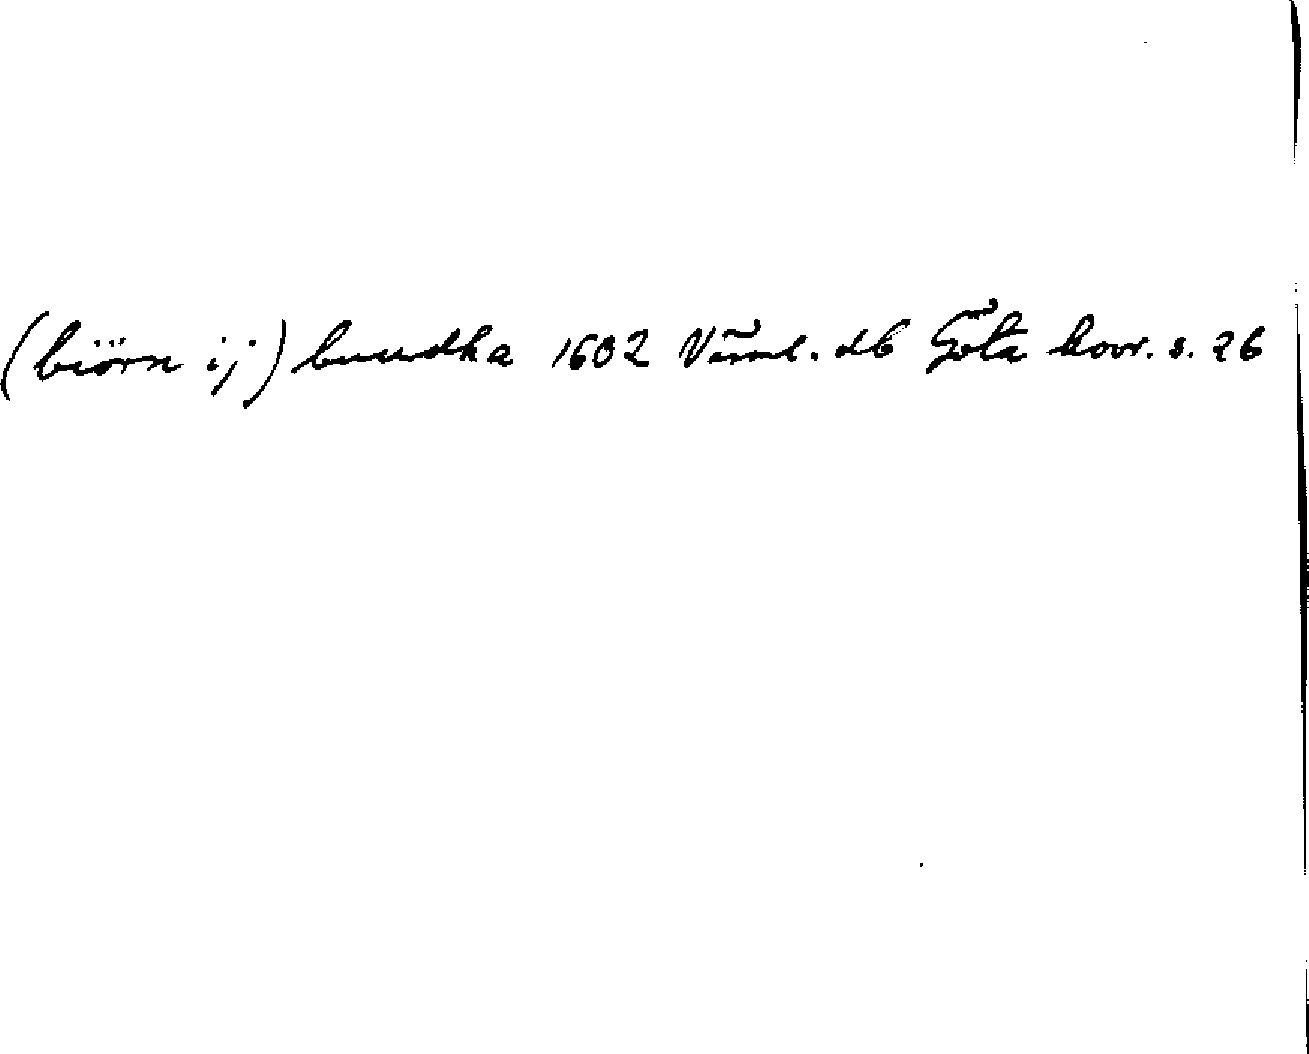 (biörn ij) buudka 1602 Värml. db Göta hovr. s. 26